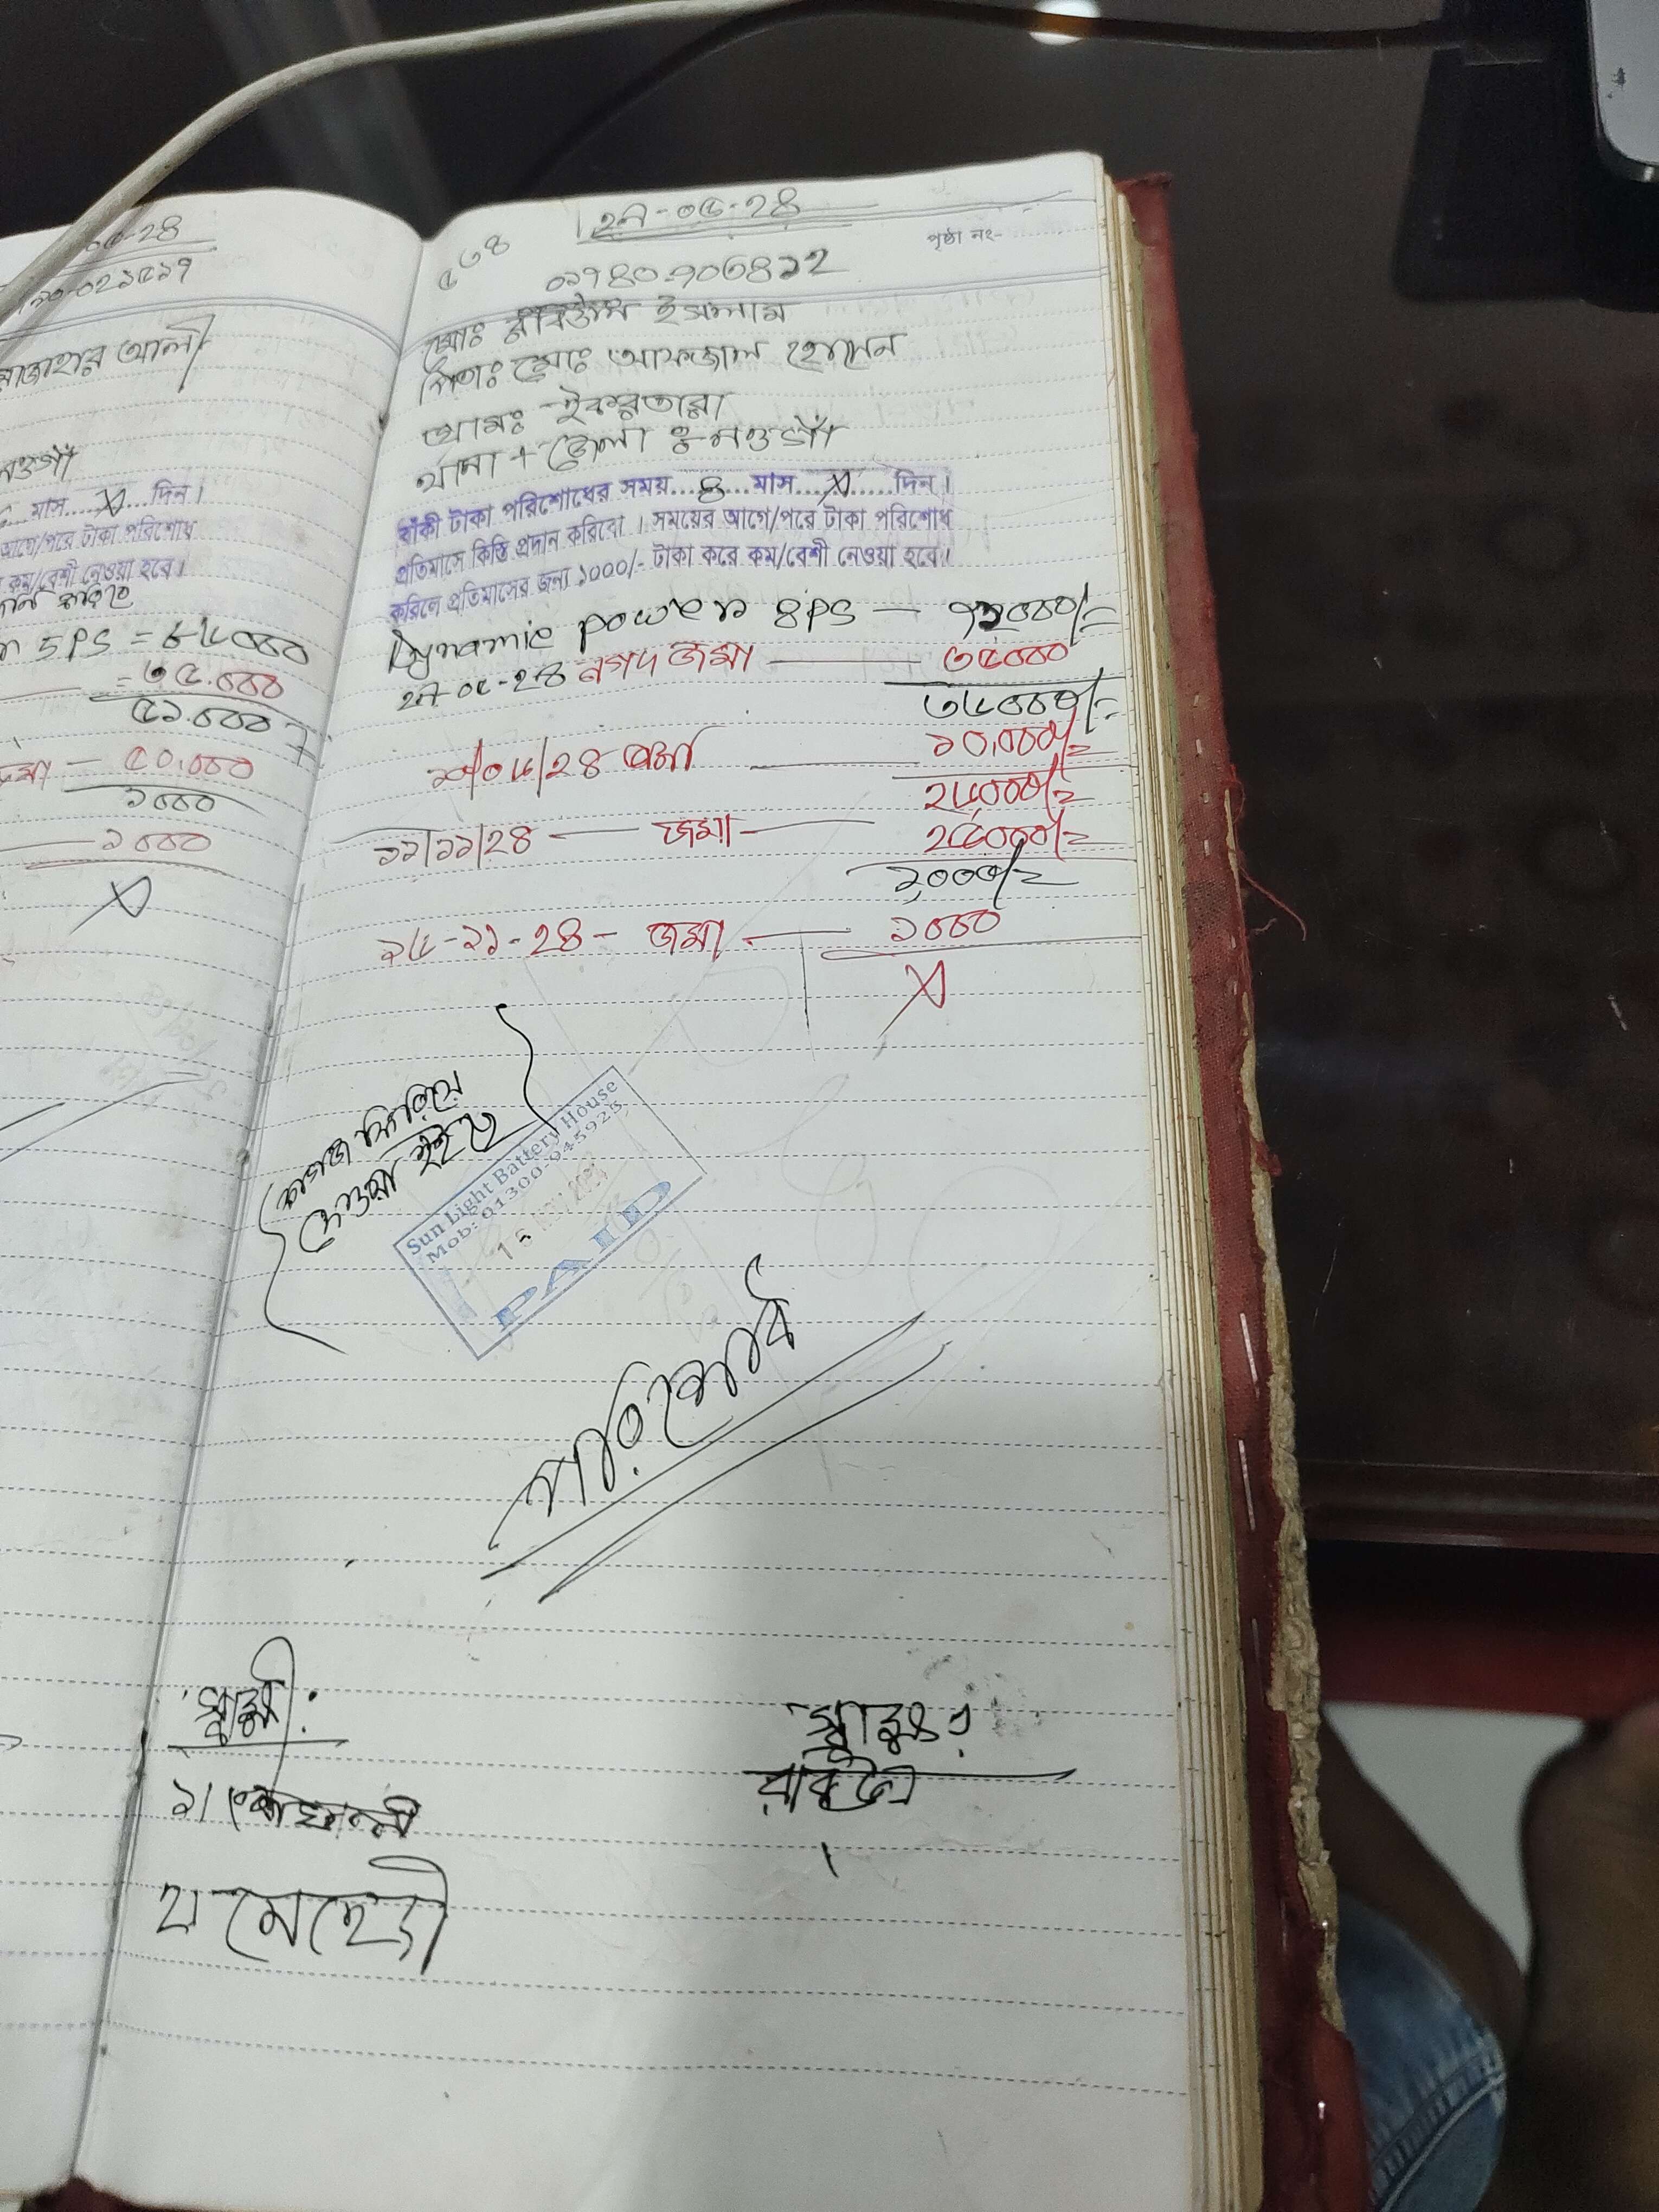 ০৫-২৪
মোজাহার আলী
নওগাঁ
মাস....X....দিন।
আগে/পরে টাকা পরিশোধ
কম/বেশী নেওয়া হবে।
5PS = ৮৬০০০
= ৩৫.০০০
৫১.০০০
জমা — ৫০,০০০
১০০০
১০০০
X
৫৩৪
২৭-০৫-২৪
পৃষ্ঠা নং-
০১৭৪০-৭০৩৪১২
মোঃ রবিউল ইসলাম
পিতাঃ মোঃ আফজাল হোসেন
গ্রামঃ ইকরতারা
থানা + জেলা ঃ নওগাঁ
বাঁকী টাকা পরিশোধের সময়....৪....মাস....X....দিন।
প্রতিমাসে কিস্তি প্রদান করিবো। সময়ের আগে/পরে টাকা পরিশোধ
করিলে প্রতিমাসের জন্য ১০০০/- টাকা করে কম/বেশী নেওয়া হবে।
Dynamic power 4PS — ৭১০০০/=
২৭-০৫-২৪ নগদ জমা — ৩৫০০০
৩৬০০০/=
১০/০৬/২৪ জমা — ১০,০০০/=
২৬০০০/=
১১/১১/২৪ — জমা — ২৫০০০/=
১০০০/=
১৬-১১-২৪ — জমা — ১০০০
X
কাগজ ফিরিয়ে
দেওয়া হইছে
Sun Light Battery House
Mob: 01300-945925
16 NOV 2024
PAID
পরিশোধ
স্বাক্ষী:
২। মেহেদী
স্বাক্ষরঃ
রবিউল